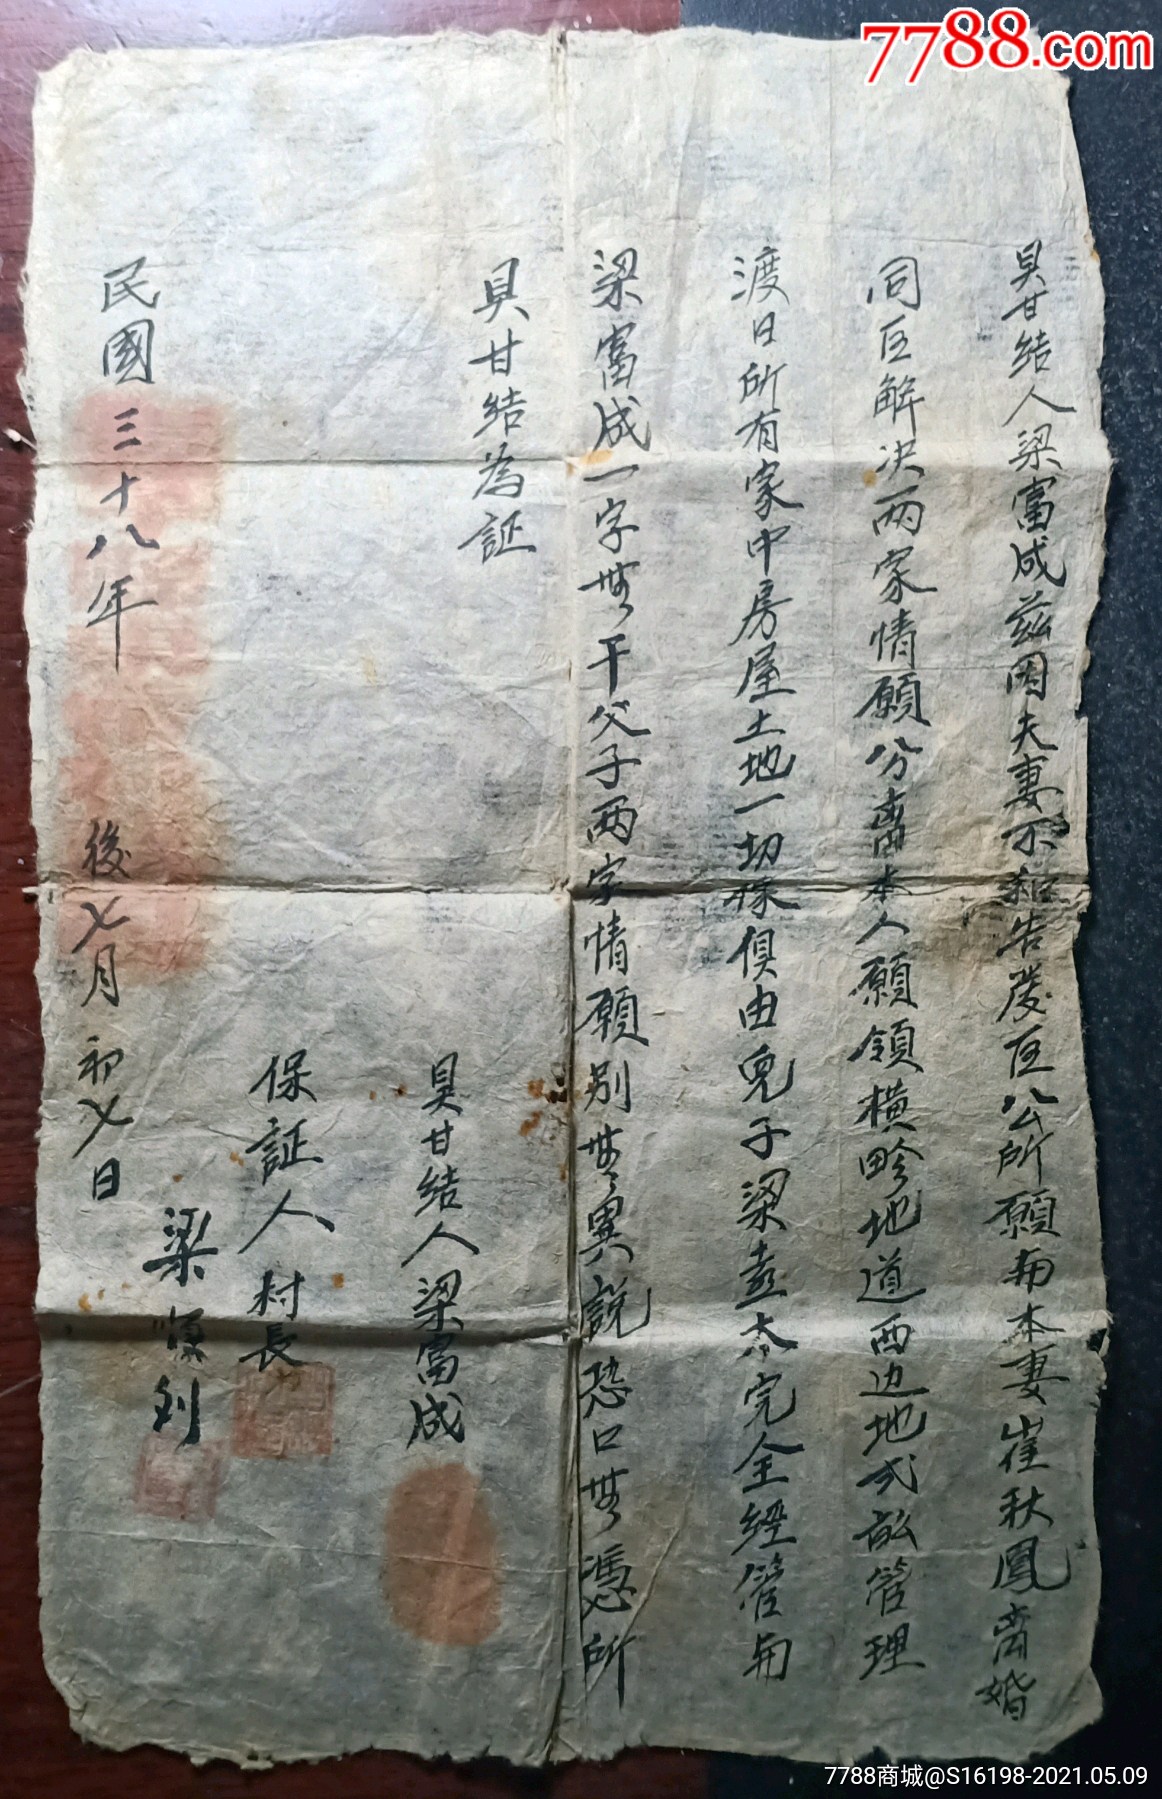 7788.com
具甘结人梁富成兹因夫妻不和告及区公所愿与本妻崔秋鳳离婚
同区解决两家情願分离本人願領横畛地道西边地弍畝管理
渡日所有家中房屋土地一切稼俱由兒子梁 太完全經管与
梁富成一字無干父子两家情願别無異説恐口無憑所
具甘结為証
具甘结人梁富成
保証人村長
梁 到
民國三十八年 後七月初七日
7788商城@S16198-2021.05.09